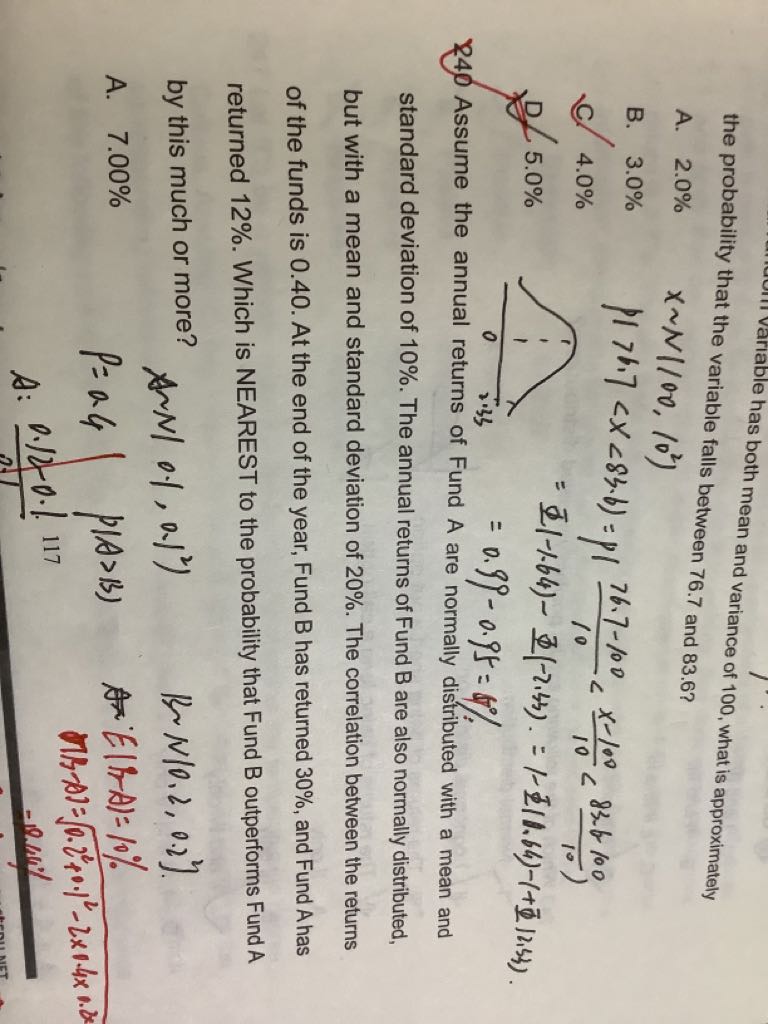 variable has both mean and variance of 100, what is approximately
the probability that the variable falls between 76.7 and 83.6?
A. 2.0%
X~N(100, 10²)
B. 3.0%
P(76.7 < X < 83.6) = P( 76.7-100 / 10 < X-100 / 10 < 83.6-100 / 10 )
C. 4.0%
= Φ(-1.64) - Φ(-2.33). = 1-Φ(1.64)-1+Φ(2.33).
D. 5.0%
0 2.33
= 0.99 - 0.95 = 4%
240 Assume the annual returns of Fund A are normally distributed with a mean and
standard deviation of 10%. The annual returns of Fund B are also normally distributed,
but with a mean and standard deviation of 20%. The correlation between the returns
of the funds is 0.40. At the end of the year, Fund B has returned 30%, and Fund A has
returned 12%. Which is NEAREST to the probability that Fund B outperforms Fund A
by this much or more?
A~N(0.1, 0.1²) B~N(0.2, 0.2²).
A. 7.00%
ρ=0.4 P(A>B) E(B-A)=10%
σ(B-A)=√0.2²+0.1²-2×0.4×0.2×
A: 0.12-0.1
117